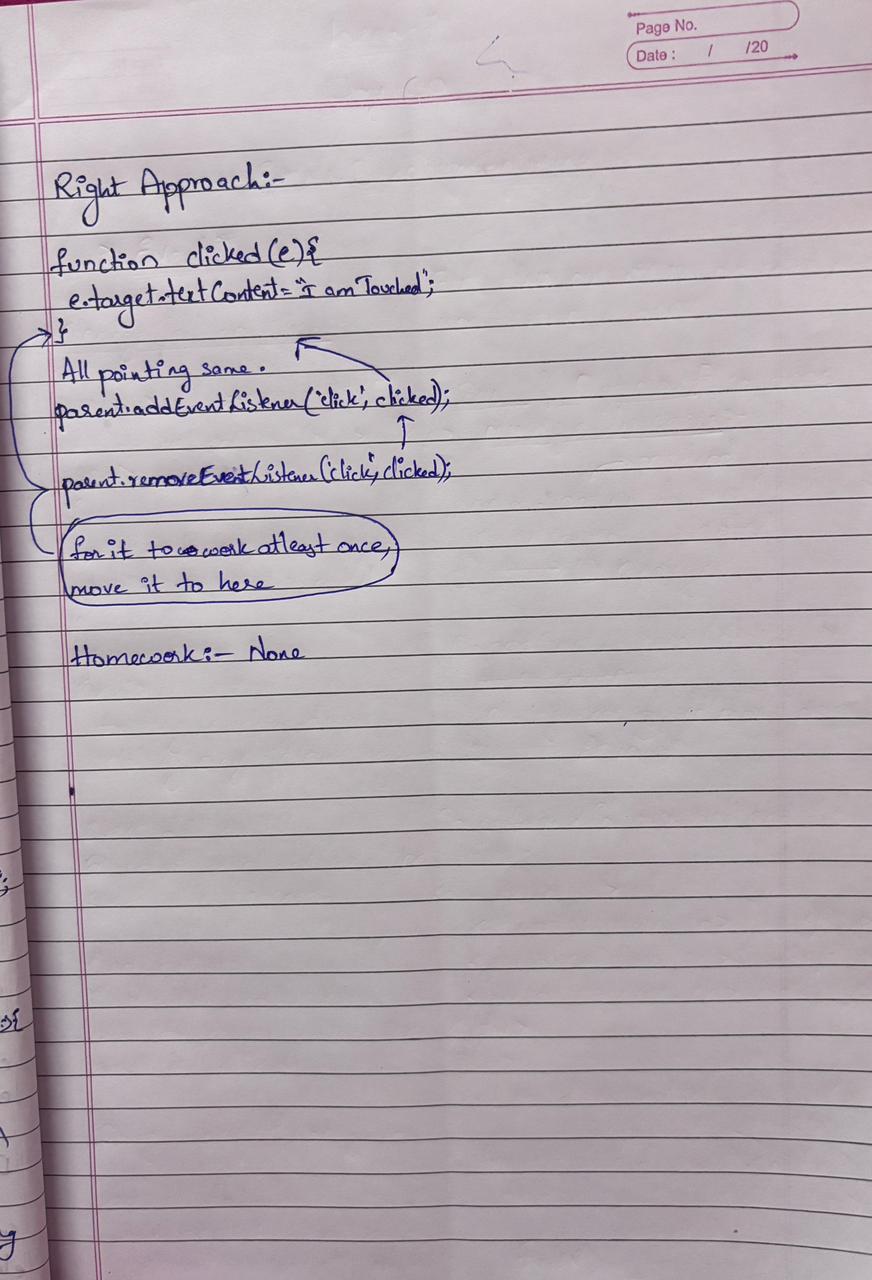 Page No.
Date : / /20
Right Approach:-
function clicked(e){
e.target.textContent="I am Touched";
}
All pointing same.
parent.addEventListener('click', clicked);
parent.removeEventListener('click', clicked);
for it to work atleast once,
move it to here
Homework:- None